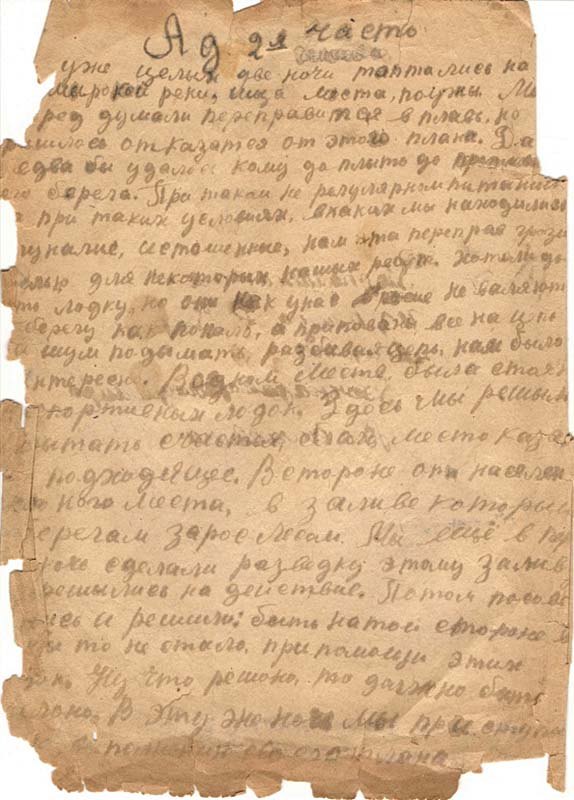 Ад 2я часть
уже целых две ночи таптались на
широкой реки, ища места, получы
ред думали переправится в плавь, но
ршлось отказатся от этого плана. Да
едва бы удалос кому до плыто до
его берега. При таком не регулярном питании
при таких условиях, вкаких мы находились
истощенные, нам эта переправ грози
елью для некоторых наших ребят. Хотели до
ть лодку, но они как у нас в не валяют
берегу как попаль, а прикованы все на цепь
шум подымать, разбивая цепь, нам было
нтересно. В одном месте была стоян
спортивных лодок. Здесь мы решили
пытать счастья, само место каза
подходящее. В стороне от населен
ного места, в заливе которы
берегам зарос лесом. Мы ещё в
сделали разведку этому залив
решылись на действие. Потом посове
сь и решили: быть на той стороне
бы то не стало, при помощи этих
ок. Ну что решоно, то должно быть
лоно. В эту же ночь мы приступи
плана